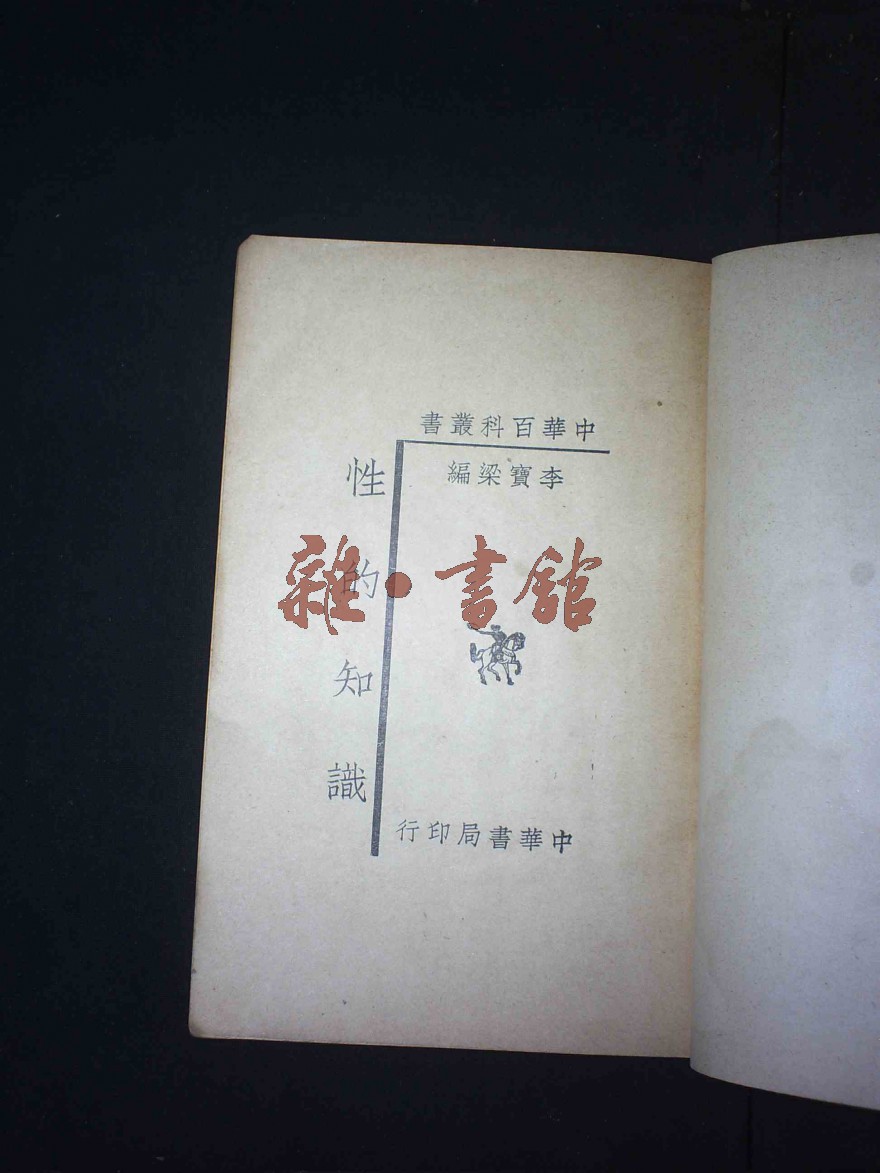 中華百科叢書
李寶梁編
性的知識
雜·書館
中華書局印行